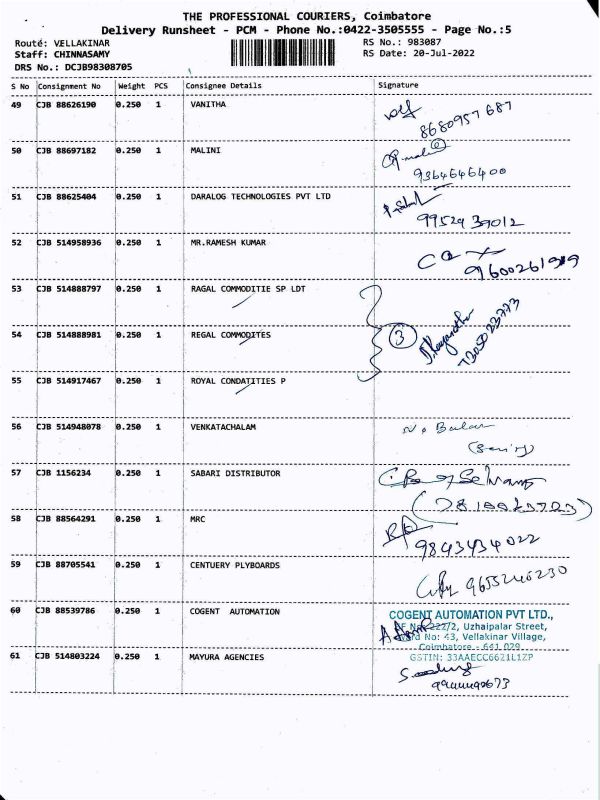 THE PROFESSIONAL COURIERS, Coimbatore
Delivery Runsheet - PCM - Phone No.:0422-3505555 - Page No.:5
Route: VELLAKINAR RS No.: 983087
Staff: CHINNASAMY RS Date: 20-Jul-2022
DRS No.: DCJB98308705
S No Consignment No Weight PCS Consignee Details Signature
49 CJB 88626190 0.250 1 VANITHA
8680957687
50 CJB 88697182 0.250 1 MALINI
9364646400
51 CJB 88625404 0.250 1 DARALOG TECHNOLOGIES PVT LTD
9952439012
52 CJB 514958936 0.250 1 MR.RAMESH KUMAR
53 CJB 514888797 0.250 1 RAGAL COMMODITIE SP LDT
54 CJB 514888981 0.250 1 REGAL COMMODITES 3
55 CJB 514917467 0.250 1 ROYAL CONDATITIES P
56 CJB 514948078 0.250 1 VENKATACHALAM
57 CJB 1156234 0.250 1 SABARI DISTRIBUTOR
58 CJB 88564291 0.250 1 MRC
9843434022
59 CJB 88705541 0.250 1 CENTUERY PLYBOARDS
9655246230
60 CJB 88539786 0.250 1 COGENT AUTOMATION COGENT AUTOMATION PVT LTD.,
222/2, Uzhaipalar Street,
No: 43, Vellakinar Village,
Coimbatore - 641 029
61 CJB 514803224 0.250 1 MAYURA AGENCIES GSTIN: 33AAECC6621L1ZP